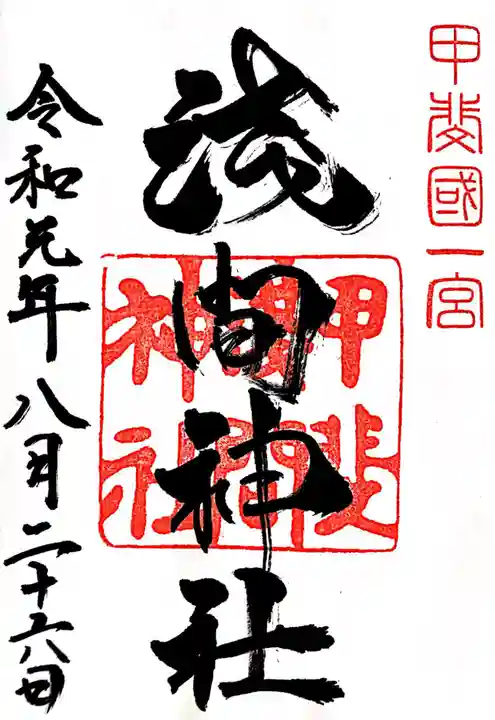 甲斐國一宮
浅間神社
甲斐
淺間
神社
令和元年八月二十六日